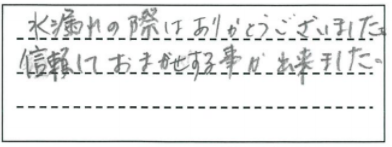 水漏れの際はありがとうございました。
信頼しておまかせする事が出来ました。